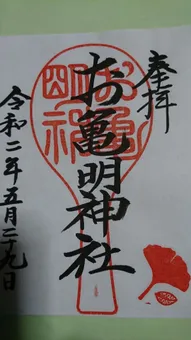 奉拝
お亀明神社
令和二年五月二十九日